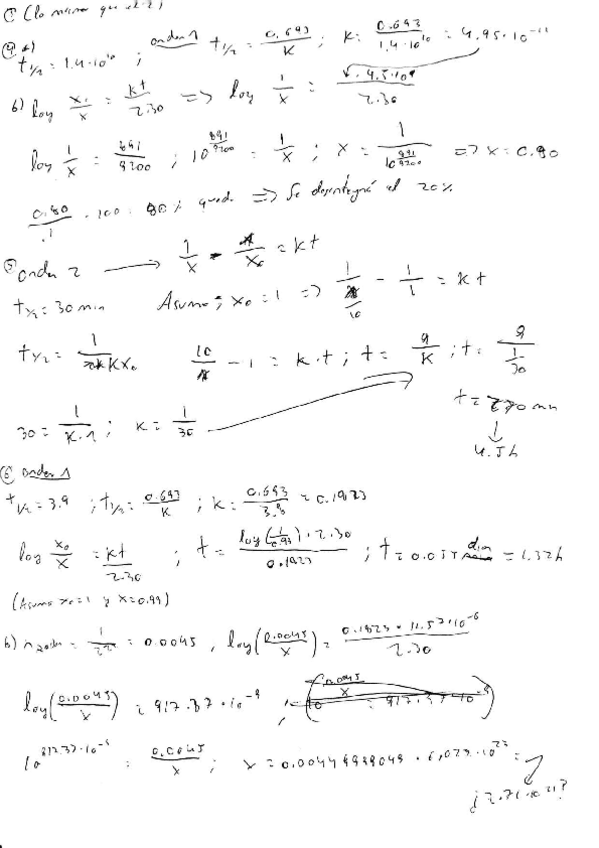 (lo mismo que el 2)
④ a)
t½ = 1.4·10¹⁰ ; orden 1 t½ = 0.693/K ; K = 0.693/1.4·10¹⁰ = 4.95·10⁻¹¹
b) log x₀/x = kt/2.30 => log 1/x = 4.5·10⁹/2.30
log 1/x = 891/9200 ; 10^(891/9200) = 1/x ; x = 1/10^(891/9200) => x = 0.80
0.80/1 · 100 = 80% queda => Se desintegró el 20%
⑤ orden 2 → 1/x - 1/x₀ = kt
t½ = 30 min Asumo ; x₀ = 1 => 1/(1/10) - 1/1 = kt
t½ = 1/Kx₀ 10/1 - 1 = k·t ; t = 9/K ; t = 9/(1/30)
30 = 1/K·1 ; K = 1/30 t = 270 min
↓
4.5h
⑥ orden 1
t½ = 3.9 ; t½ = 0.693/K ; K = 0.693/3.9 = 0.1823
log x₀/x = kt/2.30 ; t = log(1/0.99)·2.30/0.1823 ; t = 0.055 dias = 1.32h
(Asumo x₀=1 y x=0.99)
b) = 1/222 = 0.0045 , log(0.0045/x) = 0.1823·11.57·10⁻⁶/2.30
log(0.0045/x) = 917.37·10⁻⁹ ,
10^(917.37·10⁻⁹) = 0.0045/x ; x = 0.00449999049 · 6,023·10²³ =
¿2.71·10²¹?